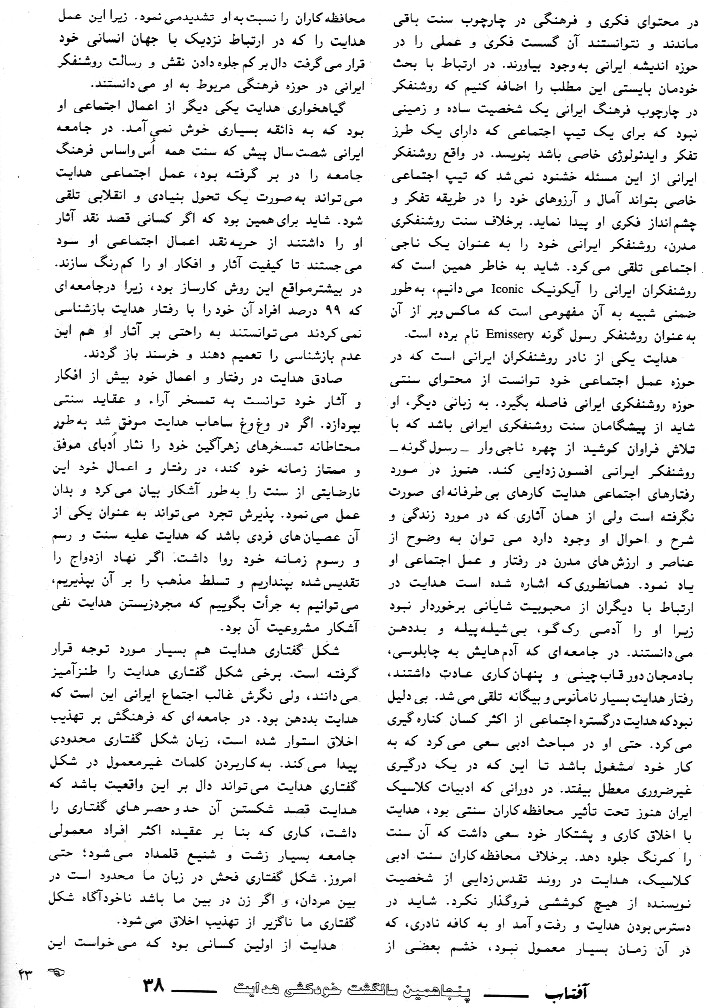 در محتوای فکری و فرهنگی در چارچوب سنت باقی
ماندند و نتوانستند آن گسست فکری و عملی را در
حوزه اندیشه ایرانی به‌وجود بیاورند. در ارتباط با بحث
خودمان بایستی این مطلب را اضافه کنیم که روشنفکر
در چارچوب فرهنگ ایرانی یک شخصیت ساده و زمینی
نبود که برای یک تیپ اجتماعی که دارای یک طرز
تفکر و ایدئولوژی خاصی باشد بنویسد. در واقع روشنفکر
ایرانی از این مسئله خشنود نمی‌شد که تیپ اجتماعی
خاصی بتواند آمال و آرزوهای خود را در طریقه تفکر و
چشم‌انداز فکری او پیدا نماید. برخلاف سنت روشنفکری
مدرن، روشنفکر ایرانی خود را به عنوان یک ناجی
اجتماعی تلقی می‌کرد. شاید به خاطر همین است که
روشنفکران ایرانی را آیکونیک Iconic می‌دانیم، به‌طور
ضمنی شبیه به آن مفهومی است که ماکس وبر از آن
به‌عنوان روشنفکر رسول گونه Emissery نام برده است.
هدایت یکی از نادر روشنفکران ایرانی است که در
حوزه عمل اجتماعی خود توانست از محتوای سنتی
حوزه روشنفکری ایرانی فاصله بگیرد. به زبانی دیگر، او
شاید از پیشگامان سنت روشنفکری ایرانی باشد که با
تلاش فراوان کوشید از چهره ناجی‌وار _ رسول‌گونه _
روشنفکر ایرانی افسون‌زدایی کند. هنوز در مورد
رفتارهای اجتماعی هدایت کارهای بی‌طرفانه‌ای صورت
نگرفته است ولی از همان آثاری که در مورد زندگی و
شرح و احوال او وجود دارد می توان به وضوح از
عناصر و ارزش‌های مدرن در رفتار و عمل اجتماعی او
یاد نمود. همانطوری‌که اشاره شده است هدایت در
ارتباط با دیگران از محبوبیت شایانی برخوردار نبود
زیرا او را آدمی رک‌گو، بی‌شیله‌پیله و بددهن
می‌دانستند. در جامعه‌ای که آدم‌هایش به چاپلوسی،
بادمجان دورقاب‌چینی و پنهان‌کاری عادت داشتند،
رفتار هدایت بسیار نامأنوس و بیگانه تلقی می‌شد. بی‌دلیل
نبودکه هدایت درگستره اجتماعی از اکثر کسان کناره گیری
می‌کرد. حتی او در مباحث ادبی سعی می‌کرد که به
کار خود مشغول باشد تا این که در یک درگیری
غیرضروری معطل بیفتد. در دورانی که ادبیات کلاسیک
ایران هنوز تحت تأثیر محافظه‌کاران سنتی بود، هدایت
با اخلاق کاری و پشتکار خود سعی داشت که آن سنت
را کمرنگ جلوه دهد. برخلاف محافظه‌کاران سنت ادبی
کلاسیک، هدایت در روند تقدس‌زدایی از شخصیت
نویسنده از هیچ کوششی فروگذار نکرد. شاید در
دسترس‌بودن هدایت و رفت‌و آمد او به کافه نادری، که
در آن زمان بسیار معمول نبود، خشم بعضی از
محافظه‌کاران را نسبت‌به‌او تشدیدمی‌نمود. زیرا این عمل
هدایت را که در ارتباط نزدیک با جهان انسانی خود
قرار می‌گرفت دال بر کم جلوه دادن نقش و رسالت روشنفکر
ایرانی در حوزه فرهنگی مربوط به او می‌دانستند.
گیاهخواری هدایت یکی دیگر از اعمال اجتماعی او
بود که به ذائقه بسیاری خوش نمی‌آمد. در جامعه
ایرانی شصت‌سال پیش که سنت همه اُس‌واساس فرهنگ
جامعه را در بر گرفته بود، عمل اجتماعی هدایت
می‌تواند به‌صورت یک تحول بنیادی و انقلابی تلقی
شود. شاید برای‌همین بود که اگر کسانی قصد نقد آثار
او را داشتند از حربه‌نقد اعمال اجتماعی او سود
می‌جستند تا کیفیت آثار و افکار او را کم‌رنگ سازند.
در بیشترمواقع این روش کارساز بود، زیرا درجامعه‌ای
که ۹۹ درصد افراد آن خود را با رفتار هدایت بازشناسی
نمی‌کردند می‌توانستند به راحتی بر آثار او هم این
عدم بازشناسی را تعمیم دهند و خرسند باز گردند.
صادق هدایت در رفتار و اعمال خود بیش از افکار
و آثار خود توانست به تمسخر آراء و عقاید سنتی
بپردازد. اگر در وغ‌وغ ساهاب هدایت موفق شد به‌طور
محتاطانه تمسخرهای زهرآگین خود را نثار اُدبای موفق
و ممتاز زمانه خود کند، در رفتار و اعمال خود این
نارضایتی از سنت را به‌طور آشکار بیان می‌کرد و بدان
عمل می‌نمود. پذیرش تجرد می‌تواند به عنوان یکی از
آن عصیان‌های فردی باشد که هدایت علیه سنت و رسم
و رسوم زمانه خود روا داشت. اگر نهاد ازدواج را
تقدیس‌شده بپنداریم و تسلط مذهب را بر آن بپذیریم،
می‌توانیم به جرأت بگوییم که مجردزیستن هدایت نفی
آشکار مشروعیت آن بود.
شکل گفتاری هدایت هم بسیار مورد توجه قرار
گرفته است. برخی شکل گفتاری هدایت را طنزآمیز
می‌دانند، ولی نگرش غالب اجتماع ایرانی این است که
هدایت بددهن بود. در جامعه‌ای که فرهنگش بر تهذیب
اخلاق استوار شده است، زبان شکل گفتاری محدودی
پیدا می‌کند. به‌کاربردن کلمات غیرمعمول در شکل
گفتاری هدایت می‌تواند دال بر این واقعیت باشد که
هدایت قصد شکستن آن حدوحصرهای گفتاری را
داشت، کاری که بنا بر عقیده اکثر افراد معمولی
جامعه بسیار زشت و شنیع قلمداد می‌شود؛ حتی
امروز. شکل گفتاری فحش در زبان ما محدود است در
بین مردان، و اگر زن در بین ما باشد ناخودآگاه شکل
گفتاری ما ناگزیر از تهذیب اخلاق می‌شود.
هدایت از اولین کسانی بود که می‌خواست این
۴۳
آفتاب ___ پنجاهمین سالگشت خودکشی هدایت ___ ۳۸